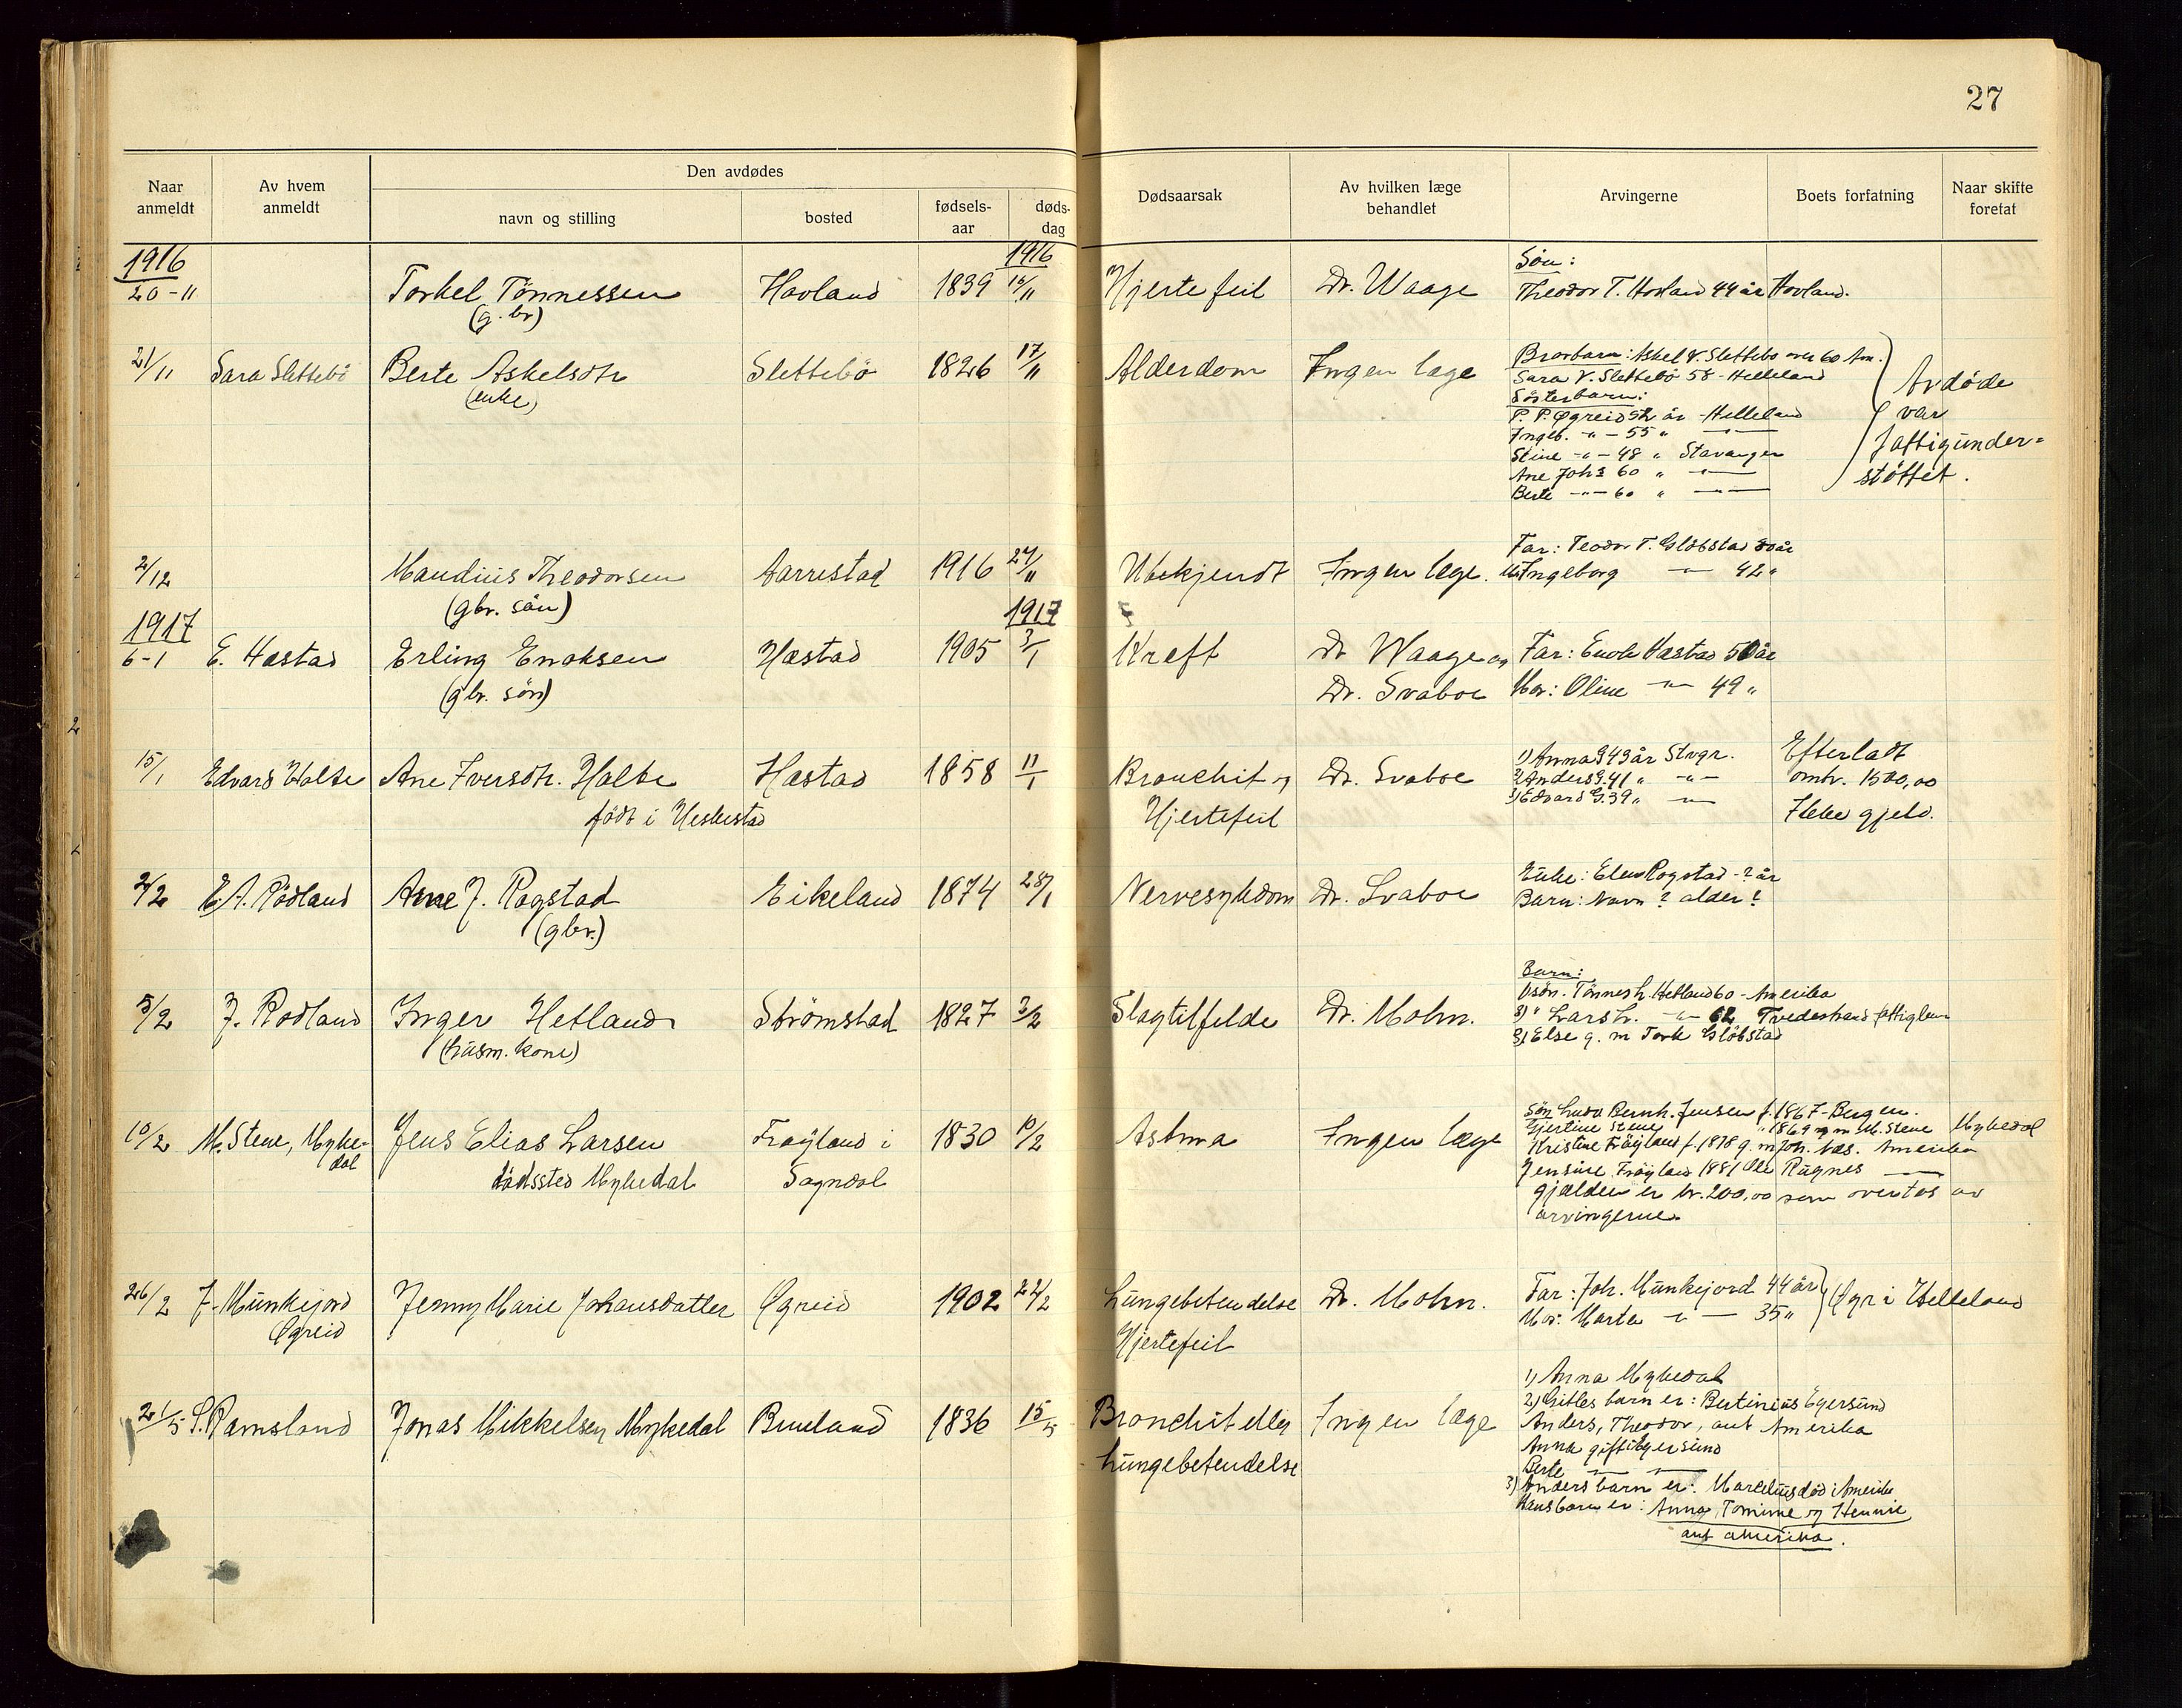 27
Naar anmeldt
Av hvem anmeldt
Den avdødes
navn og stilling
bosted
fødsels-aar
døds-dag
Dødsaarsak
Av hvilken læge behandlet
Arvingerne
Boets forfatning
Naar skifte foretat
1916
20-11 Torkel Tønnessen Hovland 1839 1916 16/11 Hjertefeil Dr. Waage
(g.br)
Søn:
Theodor T. Hovland 44 år Hovland.
21/11 Sara Slettebö Berte Askelsdtr Slettebö 1826 17/11 Alderdom Ingen læge
(enke)
Brorbarn: Askel V. Slettebö over 60 Am.
Sara V. Slettebö 58 - Helleland
Søsterbarn:
P. P. Øgreid år - Helleland
Ingeb. -"- 55 " -"-
Stine -"- 48 " Stavanger
Ane Johs 60 " -"-
Berte -"- 60 " -"-
Avdøde
var
fattigunder=
støttet.
2/12 Maudius Theodorsen Aarrestad 1916 27/11 Ubekjendt Ingen læge.
(gbr. sön)
Far: Teodor T. Glöbstad år
M. Ingeborg -"- 42 "
1917
6-1 E. Hæstad Erling Enoksen Hæstad 1905 1917 3/1 Kreft Dr Waage og
(gbr. sön) Dr. Svaboe
Far: Enok Hæstad 50 år
Mor: Oline -"- 49 "
15/1 Edvard Holte Ane Iversdtr. Holte Hæstad 1858 11/1 Bronchit og Dr. Svaboe
født i Heskestad Hjertefeil
1) Anna G 43 år Stvgr.
2) Anders G. 41 " -"-
3) Edvard G. 39 " -"-
Efterladt
omtr. 1500,00
Ikke gjeld.
2/2 E. A. Rödland Arne J. Rogstad Eikeland 1874 28/1 Nervesykdom Dr. Svaboe
(gbr.)
Enke: Elen Rogstad - ? år
Barn: Navn ? alder ?
5/2 J. Rodland Inger Hetland Strömstad 1827 3/2 Slagtilfelde Dr. Mohn.
(husm. kone)
Barn:
1) sön. Tönnes L. Hetland 60 - Amerika
2) " Lars L. -"- 62 Tvedestrand fattiglem
3) Else g. m Tork Glöbstad
10/2 M. Stene, Mykedal Jens Elias Larsen Frøyland i 1830 10/2 Astma Ingen læge
dödssted Mykedal Sogndal
Søn Ludv Bernh. Jensen f. 1867 - Bergen.
Gjertine Stene " 1869 g m M. Stene Mykedal
Kristine Frøyland f. 1878 g. m Joh. Næs. Amerika
Jensine Frøyland 1881 Ole Rugnes -"-
gjælden er kr. 200,00 som overtas av
arvingerne.
26/2 J. Munkejord Jenny Marie Johansdatter Øgreid 1902 22/2 Lungebetendelse Dr. Mohn.
Øgreid Hjertefeil
Far: Joh. Munkejord 44 år
Mor: Marta -"- 35 "
Øgr i Helleland
21/5 S. Ramsland Jonas Mikkelsen Mykedal Brueland 1836 15/5 Bronchit eller Ingen læge
Lungebetendelse
1) Anna Mykedal
2) Gitles barn er: Bertinius Egersund
Anders, Theodor, ant Amerika
Anna gift i Egersund
Berte -"- -"-
3) Anders barn er: Marelius död i Amerika
Hans barn er: Anna, Tomine og Hennie
ant amerika.